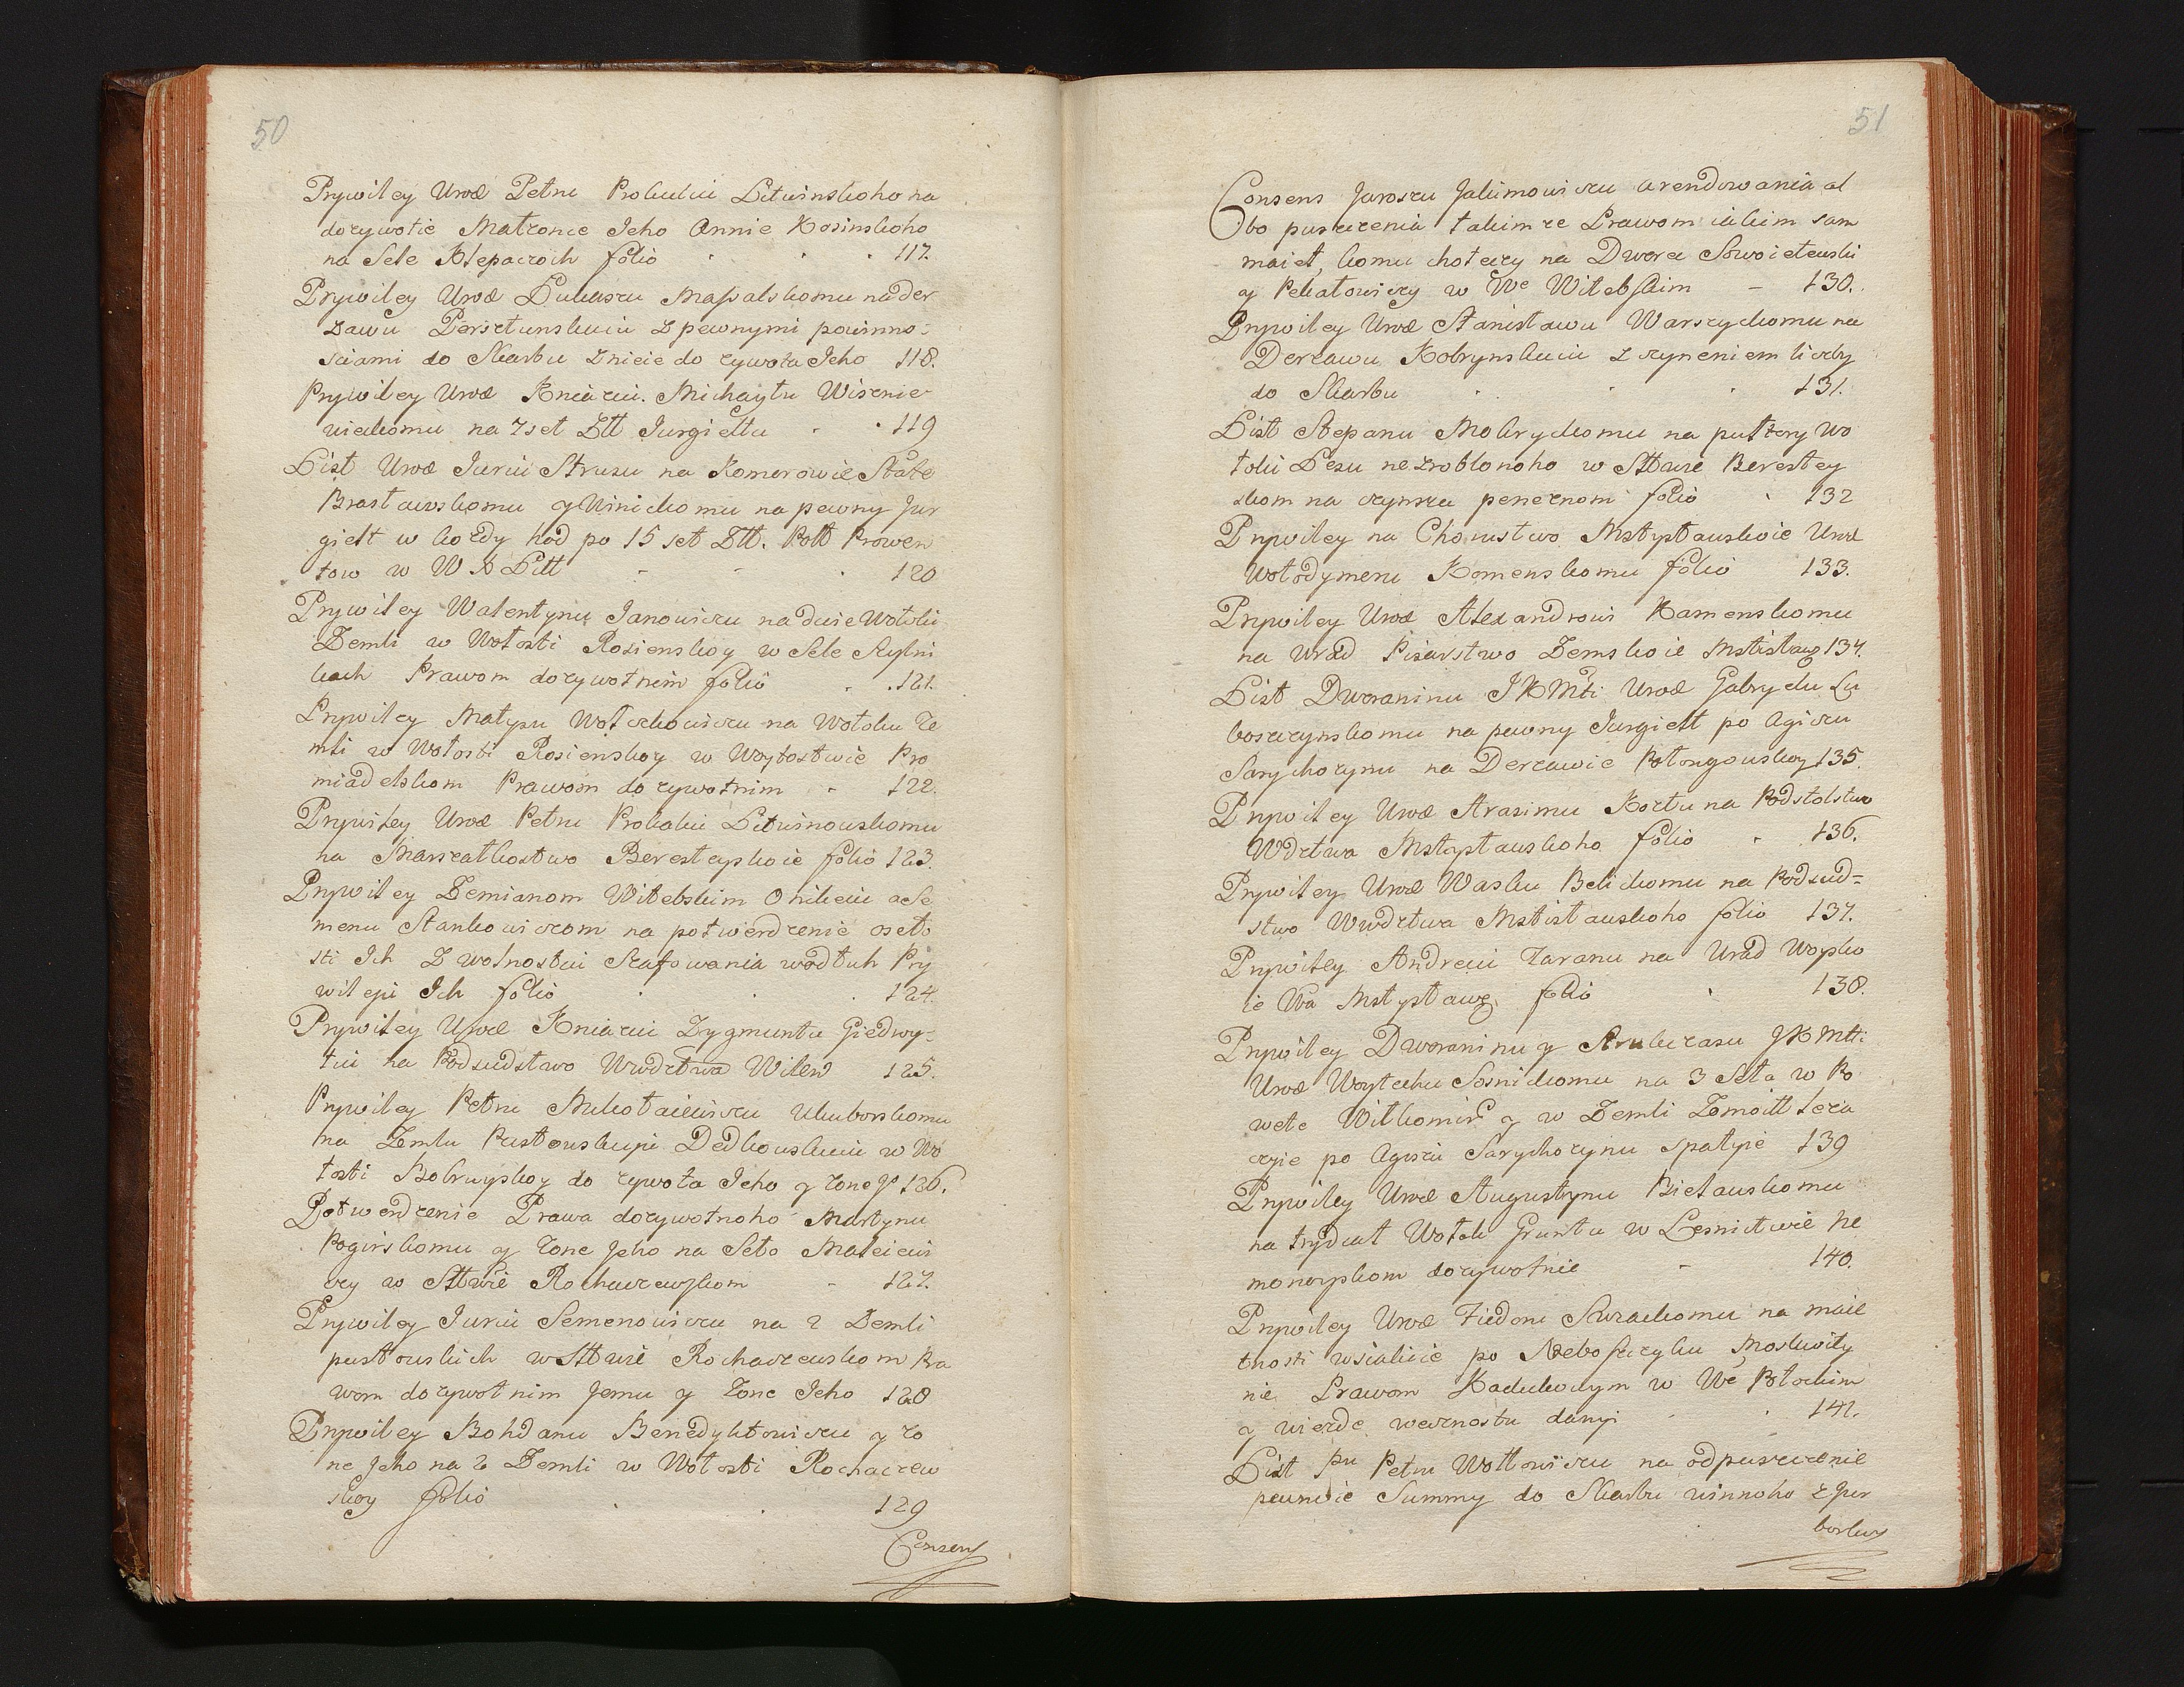 50
Prywiley Urod Petru Prokulu Litwinskoho na
dozywotie Malzonce Jeho Annie Kosinskoho
na Sele Klepaczoch folio 117.
Prywiley Urod Lukaszu Massalskomu na der
zawu Persztunskuiu z pewnymi powinno-
sciami do Skarbu z nieie do zywota Jeho 118.
Prywiley Urod Kniaziu Michaylu Wisznie
wieckomu na 7 set Ztt Jurgieltu 119
List Urod Juriu Strusu na Komorowie State
Brastawskomu y Winickomu na pewny Jur
gielt w kozdy hod po 15 set Ztt. Polt Prowen
tow w W X Litt 120
Prywiley Walentynu Janowiczu na dwie Woloki
Zemli w Wolosti Rosienskoy w Sele Rylni
kach Prawom dozywotnim folio 121.
Prywiley Matysu Wolczkowiczu na Woloku Ze
mli w Wolosti Rosienskoy w Woytostwie Pro
miadelskom Prawom dozywotnim 122.
Prywiley Urod Petru Prokuliu Litwinowskomu
na Marszalkostwo Beresteyskoie folio 123.
Prywiley Zemianom Witebskim Onikeiu a Se
menu Stankowiczom na potwierdzenie oselo
sti Ich z wolnostiu Szafowania wodluh Pry
wileiu Ich folio 124.
Prywiley Urod Kniaziu Zygmuntu Giedroy-
tiu na Podsudstwo Wwdztwa Wilen 125.
Prywiley Petru Mikolaiewiczu Ukuborskomu
na Zemlu Pustowskuju Dedkowskuiu w Wo
losti Bobruyskoy do zywota Jeho y zone Jo 126.
Potwerdzenie Prawa dozywotnoho Martynu
Pogirskomu y Zone Jeho na Selo Mateiewi
czy w Sttwie Rohaczewskom 127.
Prywiley Juriu Semenowiczu na 2 Zemli
pustowskich w Sttwie Rohaczewskom Pra
wom dozywotnim Jemu y Zone Jeho 128
Prywiley Bohdanu Benedyktowiczu y Zo
ne Jeho na 2 Zemli w Wolosti Rochaczew
skoy folio 129
Consens
51
Consens Jaroszu Jakimowiczu arendowania al
bo puszczenia takim ze Prawom iakim sam
maiet, komu chotczy na Dworce Sowietewski
y Pekatowiczy w We Witebskim 130.
Prywiley Urod Stanislawu Warszyckomu na
Derzawu Kobrynskuiu z czyneniem liczby
do Skarbu 131.
List Stepanu Mokryckomu na pultory Wo
loki Lesu nezroblonoho w Sttwie Berestey
skom na czynszu penežnom folio 132
Prywiley na Chorustwo Mstyslawskoie Urod
Wolodymeru Komenskomu folio 133.
Prywiley Urod Alexandrowi Kamenskomu
na Urad Pisarstwo Zemskoie Mstislaws 134.
List Dworaninu JKMti Urod Gabryelu Lu
boszczynskomu na pewny Jurgielt po Agiszu
Sarychozynu na Derzawie Polongowskoy 135.
Prywiley Urod Arasimu Kozlu na Podstolstwo
Wdztwa Mstyslauskoho folio 136.
Prywiley Urod Wasku Belickomu na Podsud-
stwo Wwdztwa Mstislauskoho folio 137.
Prywiley Andreiu Zaranu na Urad Woysko
ie Wa Mstyslawz folio 138.
Prywiley Dworaninu y Strukczasu JKMtti
Urod Woytechu Sosnickomu na 3 Sela w Po
wete Wilkomirs y w Zemli Zomoitt leza
czyie po Agiszu Sarychozynu spalyie 139
Prywiley Urod Augustynu Bielauskomu
na trydcat Wolok Gruntu w Lesnictwie Ne
monoyskom dozywotnie 140.
Prywiley Urod Fiedoru Skrzackomu na maie
tnosti wsiakiie po Neboszczyku Moskwity
nie Prawom Kadukowym w We Polockim
y wierde wecznostu danyi 141.
List Pu Petru Wollowiczu na odpuszczenie
pewnoie Summy do Skarbu winnoho z Jur
borkuy